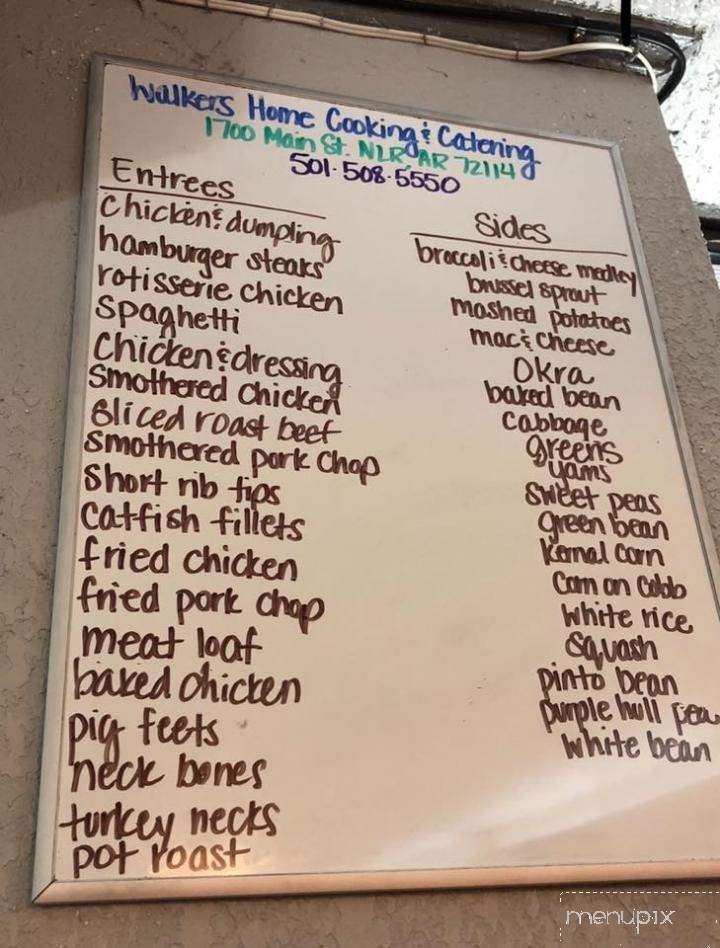 Walkers Home Cooking & Catering
1700 Main St. NLR, AR 72114
501-508-5550
Entrees
Chicken & dumpling
hamburger steaks
rotisserie chicken
Spaghetti
Chicken & dressing
Smothered Chicken
Sliced roast beef
Smothered pork chop
Short rib tips
Catfish fillets
fried chicken
fried pork chop
meat loaf
baked chicken
pig feets
neck bones
turkey necks
pot roast
Sides
broccoli & cheese medley
brussel sprout
mashed potatoes
mac & Cheese
Okra
baked bean
Cabbage
greens
yams
Sweet peas
green bean
Kernal Corn
Corn on Cobb
White rice
Squash
pinto bean
purple hull pea
White bean
menupix